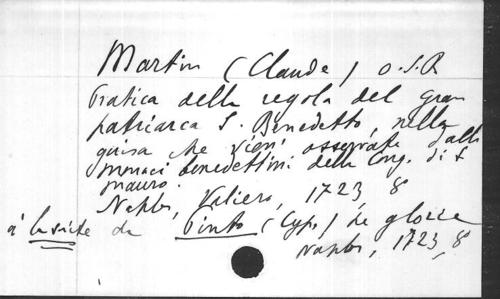 Martin (Claude) O.S.B
Pratica della regola del gran
patriarca S. Benedetto, nella
guisa che vien' osservata dalli
monaci benedettini della Cong. di S.
mauro.
Naples, Valiero, 1723, 8
à la suite de Pinto (Cyp.) Le glorie
Naples, 1723, 8